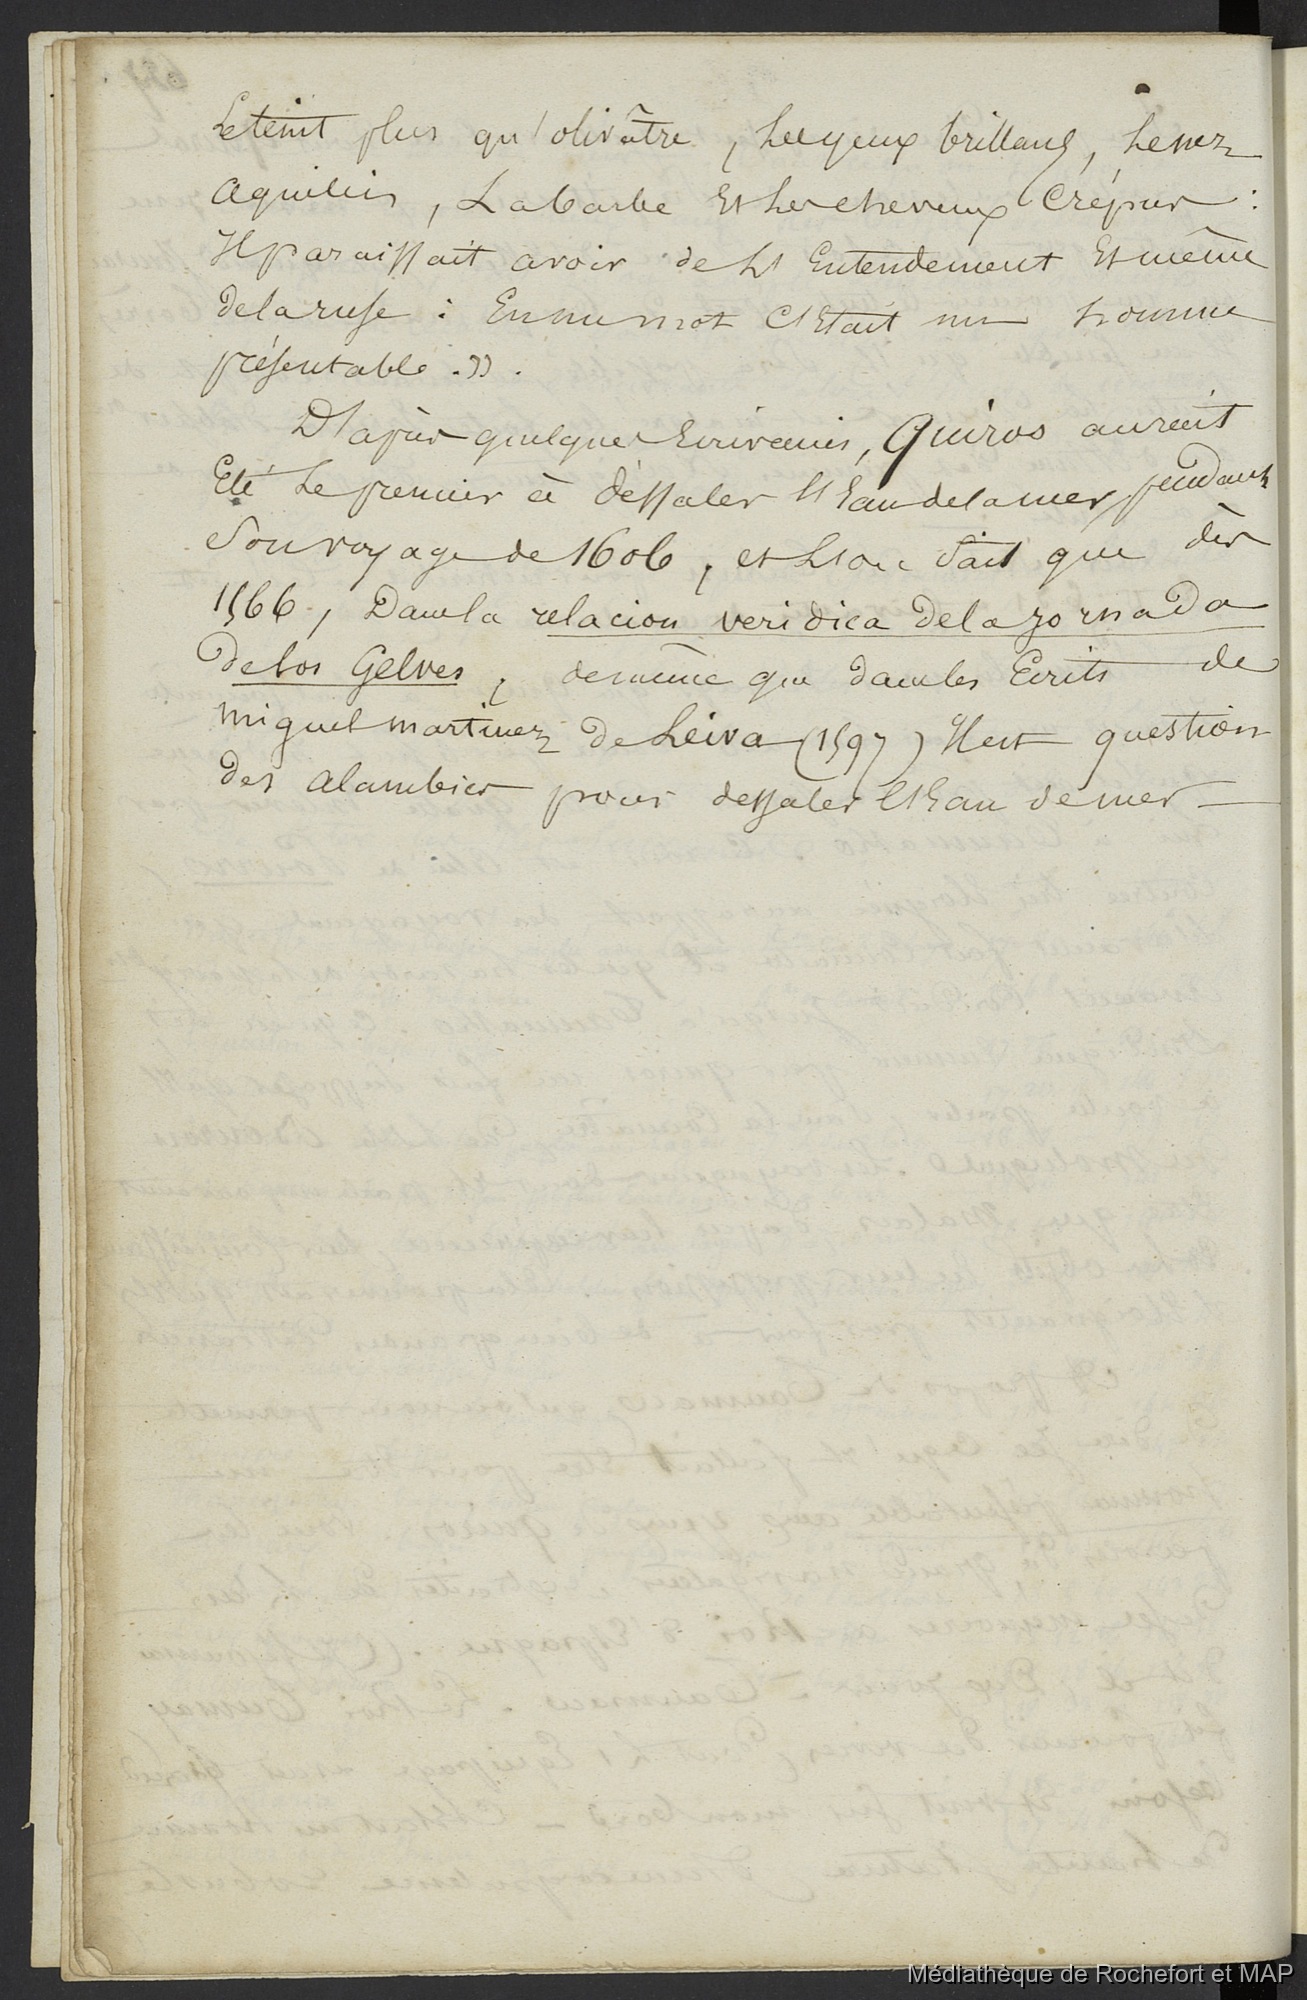 Le teint plus qu'olivâtre, les yeux brillans, le nez
aquilin, La barbe et les cheveux crépus :
Il paraissait avoir de l'Entendement et même
de la ruse : En un mot c'Etait un homme
présentable. ».
D'après quelques Ecrivains, Quiros aurait
Eté le premier à déssaler l'Eau de la mer, pendant
Son voyage de 1606, et l'on sait que dès
1566, Dans la relacion veridica de la jornada
de los Gelves, de même que dans les Ecrits de
miguel martinez de Leiva (1597) Il est question
des alambics pour dessaler l'Eau de mer —
Médiathèque de Rochefort et MAP